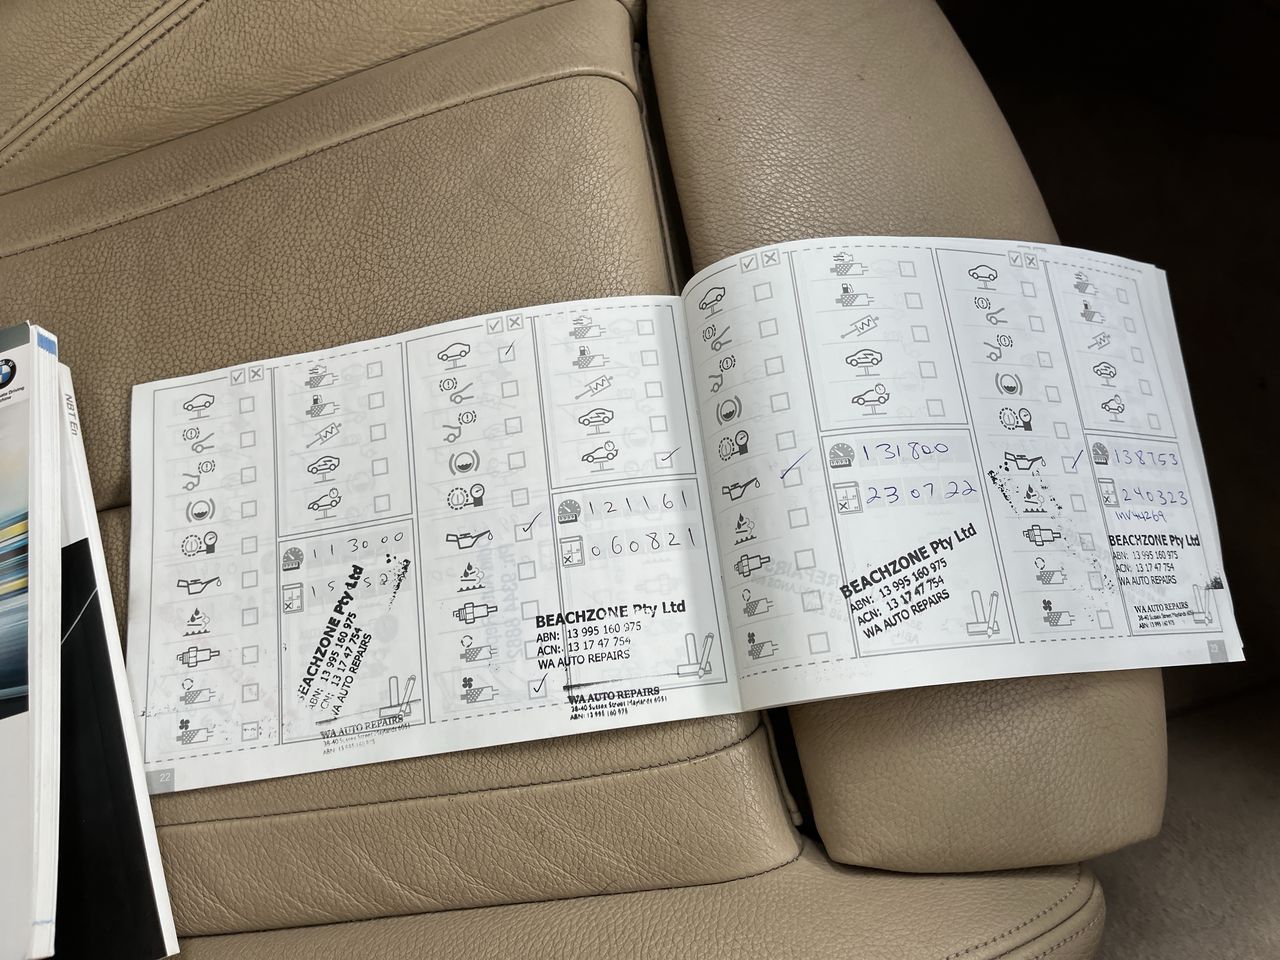 NBT En
113000
BEACHZONE Pty Ltd
13 995 160 975
13 17 47 754
WA AUTO REPAIRS
WA AUTO REPAIRS
38-40 Sussex Street Maylands 6051
22
121161
060821
BEACHZONE Pty Ltd
ABN: 13 995 160 975
ACN: 13 17 47 754
WA AUTO REPAIRS
WA AUTO REPAIRS
38-40 Sussex Street Maylands 6051
ABN: 13 995 160 975
131800
230722
BEACHZONE Pty Ltd
ABN: 13 995 160 975
ACN: 13 17 47 754
WA AUTO REPAIRS
138753
240323
INV44269
BEACHZONE Pty Ltd
ABN: 13 995 160 975
ACN: 13 17 47 754
WA AUTO REPAIRS
WA AUTO REPAIRS
38-40 Sussex Street Maylands 6051
ABN: 13 995 160 975
23